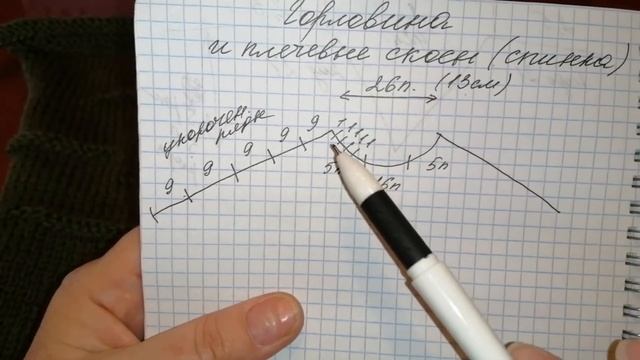 Горловина
и плечевые скосы (спинка)
26п. (13см)
укорочен.
ряды
9 9 9 9 9 1 1 1 1 1
5п 16п 5п